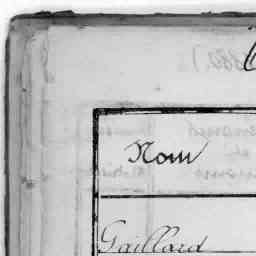 Nom
Gaillard